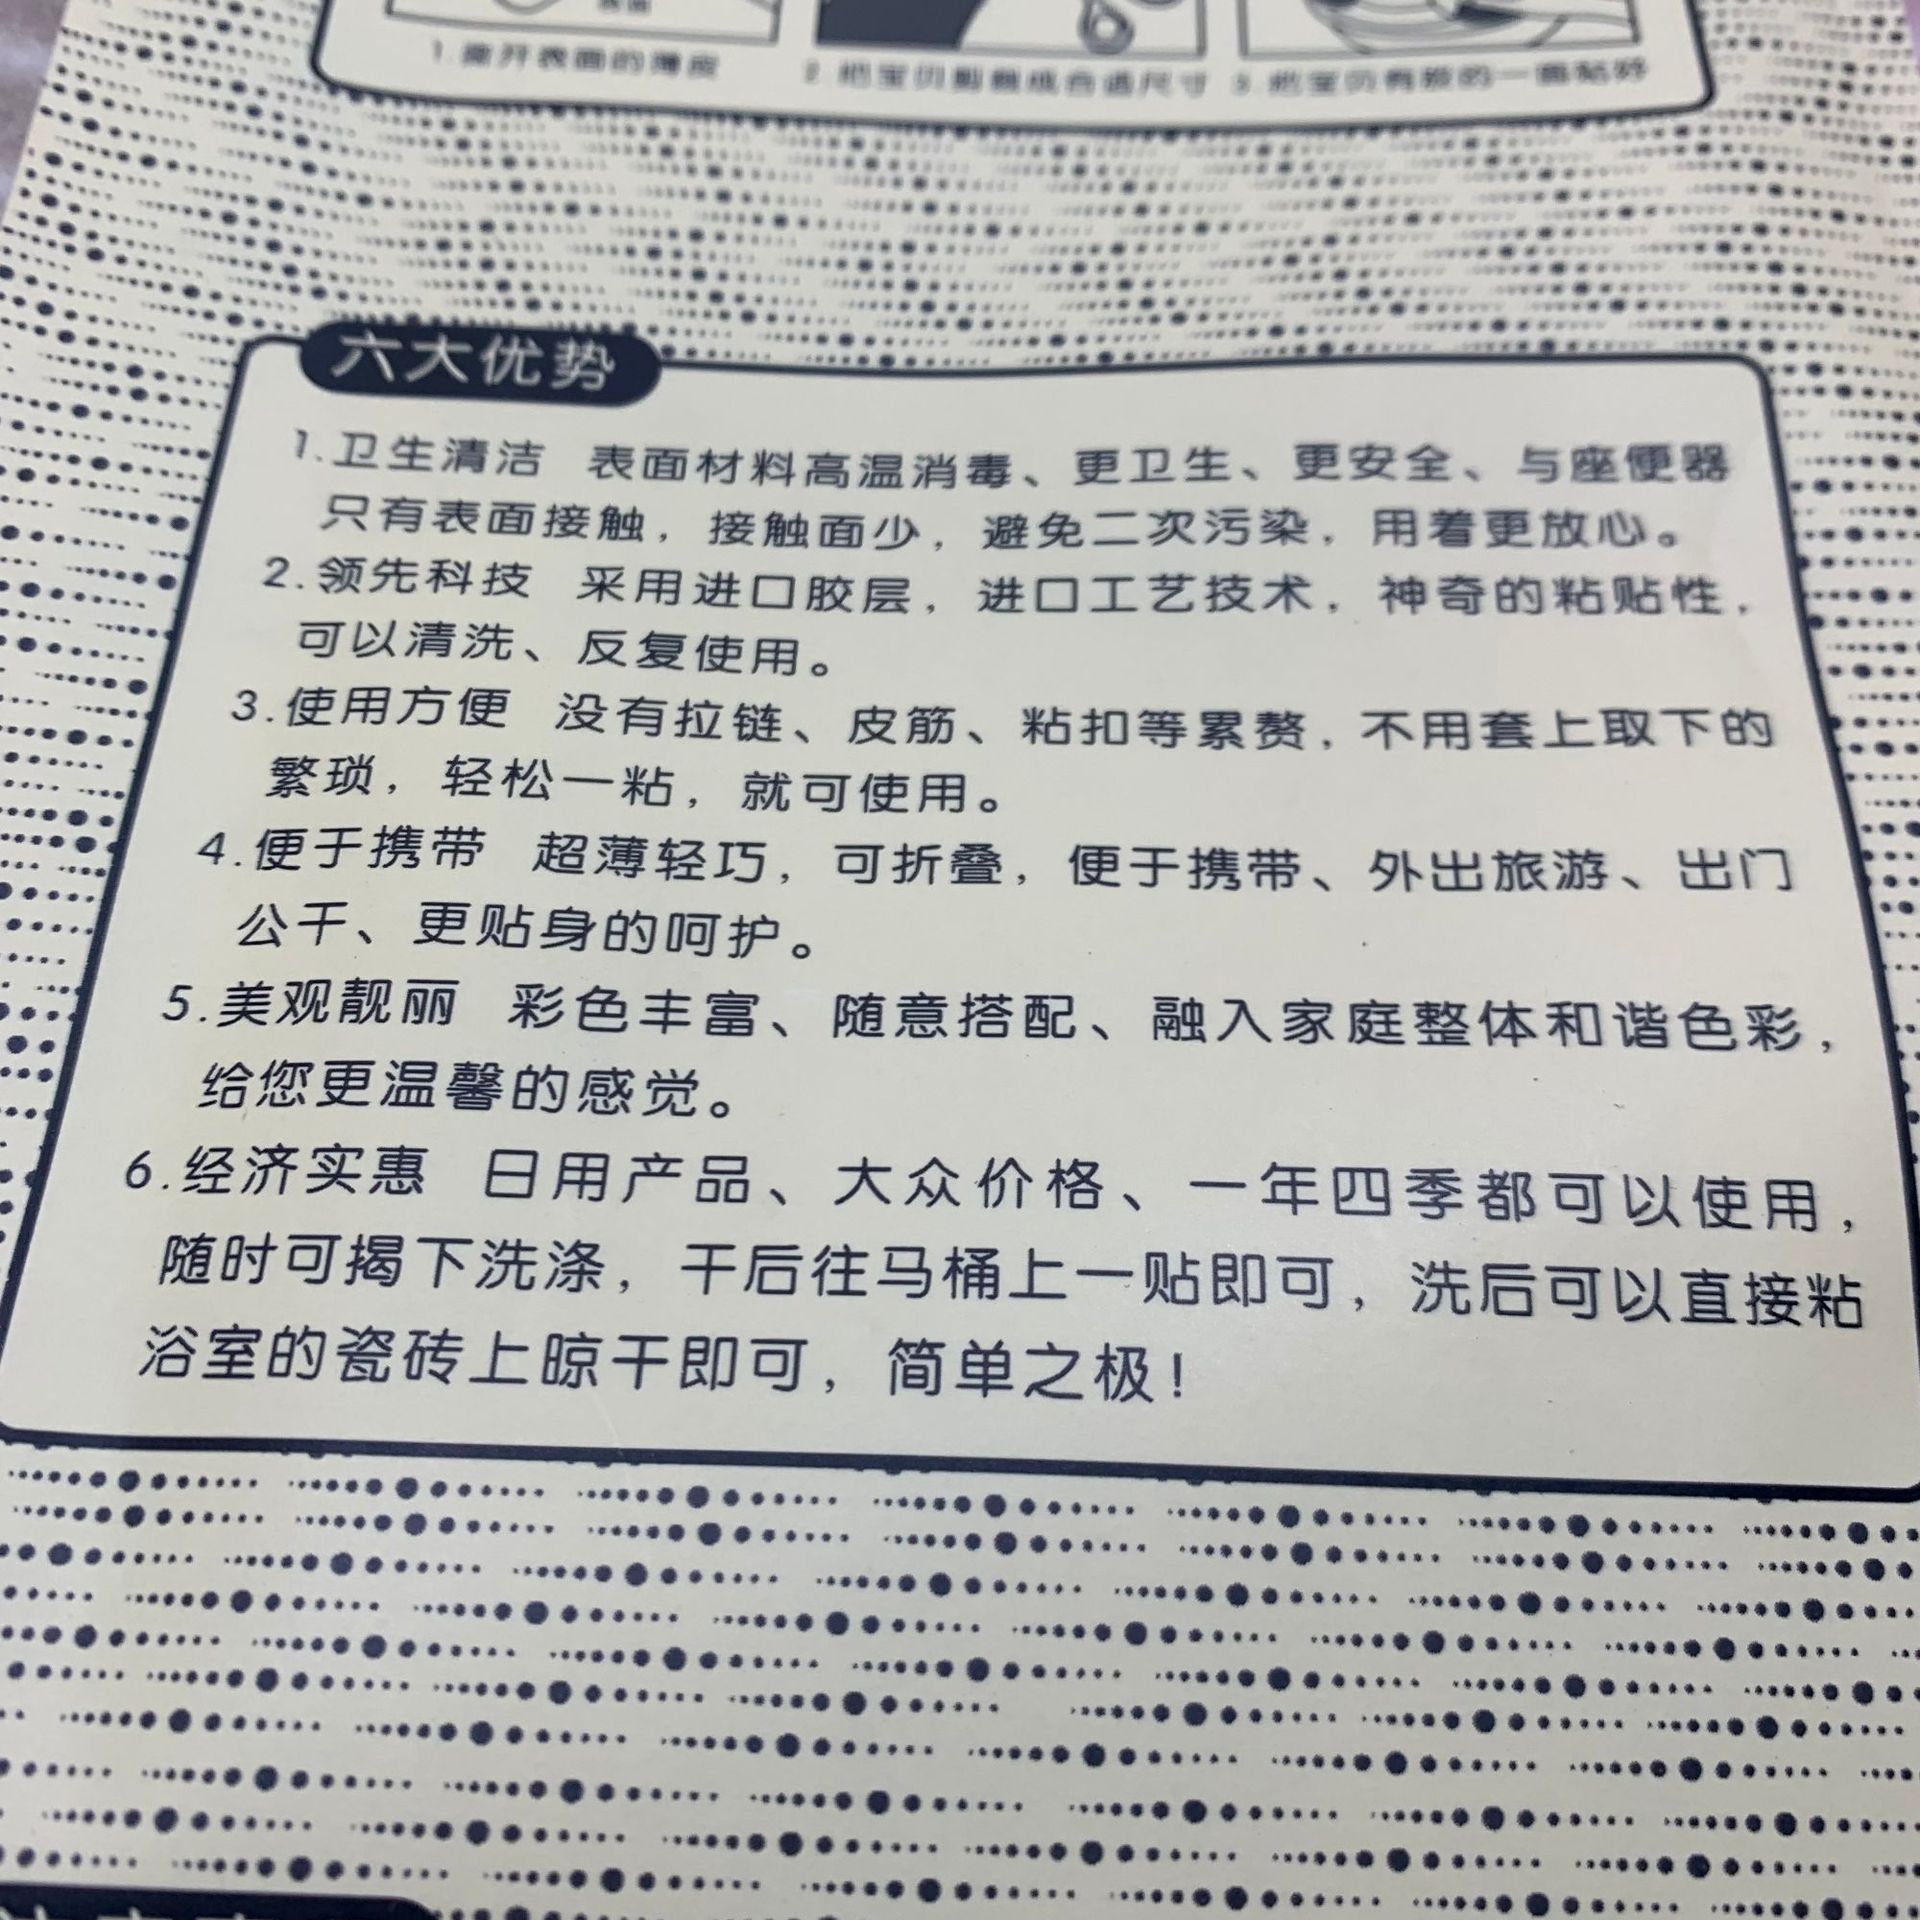 1.撕开表面的薄皮
2.把宝贝剪裁成合适尺寸 3.把宝贝有胶的一面粘好
六大优势
1.卫生清洁 表面材料高温消毒、更卫生、更安全、与座便器
只有表面接触，接触面少，避免二次污染，用着更放心。
2.领先科技 采用进口胶层，进口工艺技术，神奇的粘贴性，
可以清洗、反复使用。
3.使用方便 没有拉链、皮筋、粘扣等累赘，不用套上取下的
繁琐，轻松一粘，就可使用。
4.便于携带 超薄轻巧，可折叠，便于携带、外出旅游、出门
公干、更贴身的呵护。
5.美观靓丽 彩色丰富、随意搭配、融入家庭整体和谐色彩，
给您更温馨的感觉。
6.经济实惠 日用产品、大众价格、一年四季都可以使用，
随时可揭下洗涤，干后往马桶上一贴即可，洗后可以直接粘
浴室的瓷砖上晾干即可，简单之极！